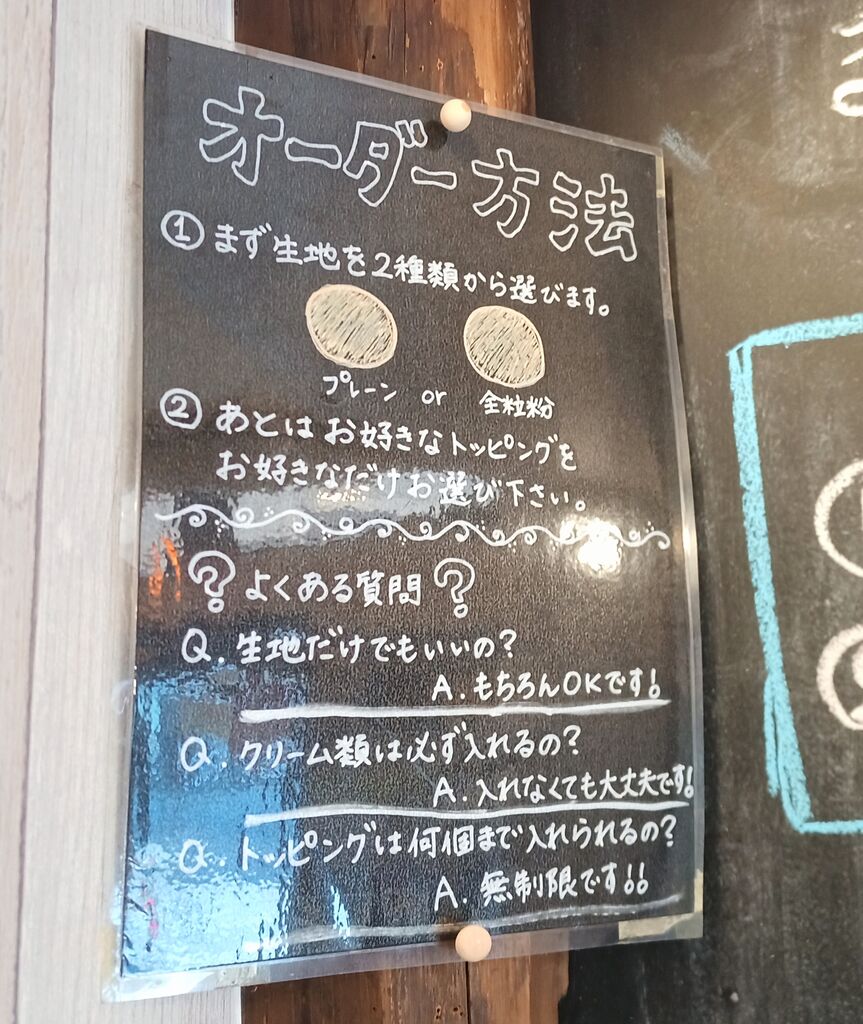 オーダー方法
① まず生地を2種類から選びます。
プレーン or 全粒粉
② あとはお好きなトッピングを
お好きなだけお選び下さい。
? よくある質問 ?
Q. 生地だけでもいいの?
A. もちろんOKです!
Q. クリーム類は必ず入れるの?
A. 入れなくても大丈夫です!
Q. トッピングは何個まで入れられるの?
A. 無制限です!!